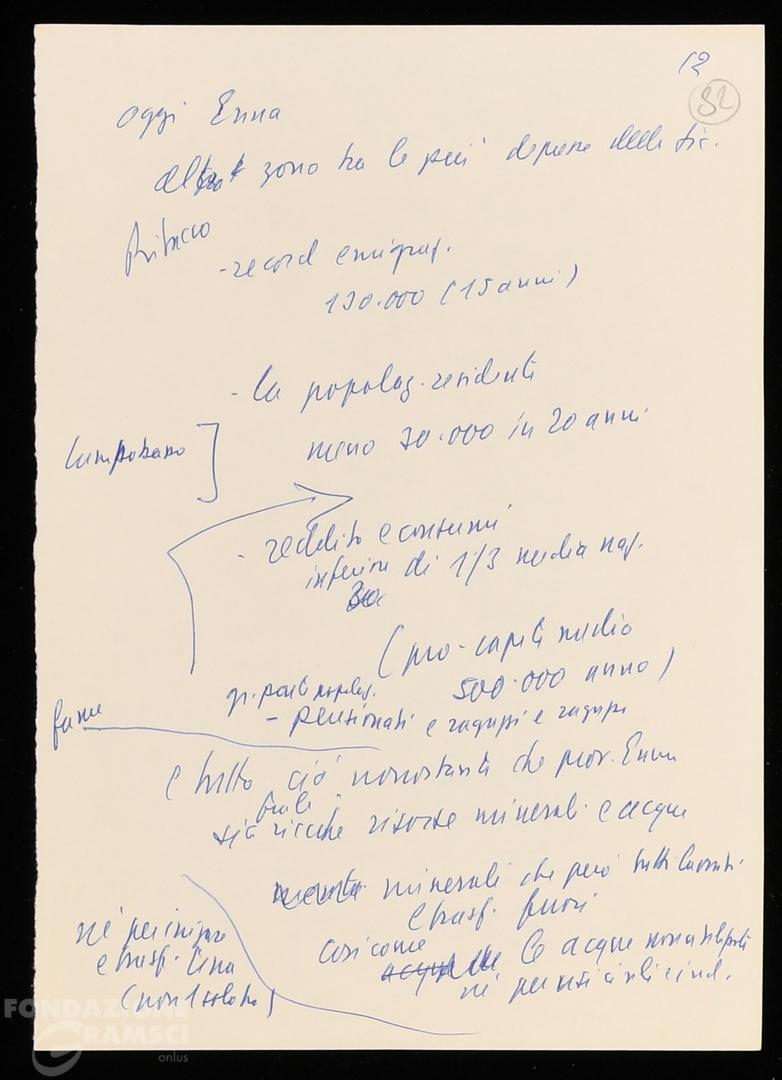 12
82
oggi Enna
zona tra le più depresse della Sic.
- record emigraz.
130.000 (15 anni)
- la popolaz. residenti
meno 30.000 in 20 anni
- reddito e consumi
inferiori di 1/3 media naz.
(pro-capite medio
500.000 anno)
gr. parte popolaz.
- pensionati e ragazzi e ragazze
e tutto ciò nonostante che prov. Enna
sia ricche risorse minerali e acque
minerali che però tutti lavorati
e trasf. fuori
così come
le acque non utilizzate
né per usi civili e ind.
né per irrigare
e trasf.
FONDAZIONE
GRAMSCI
onlus